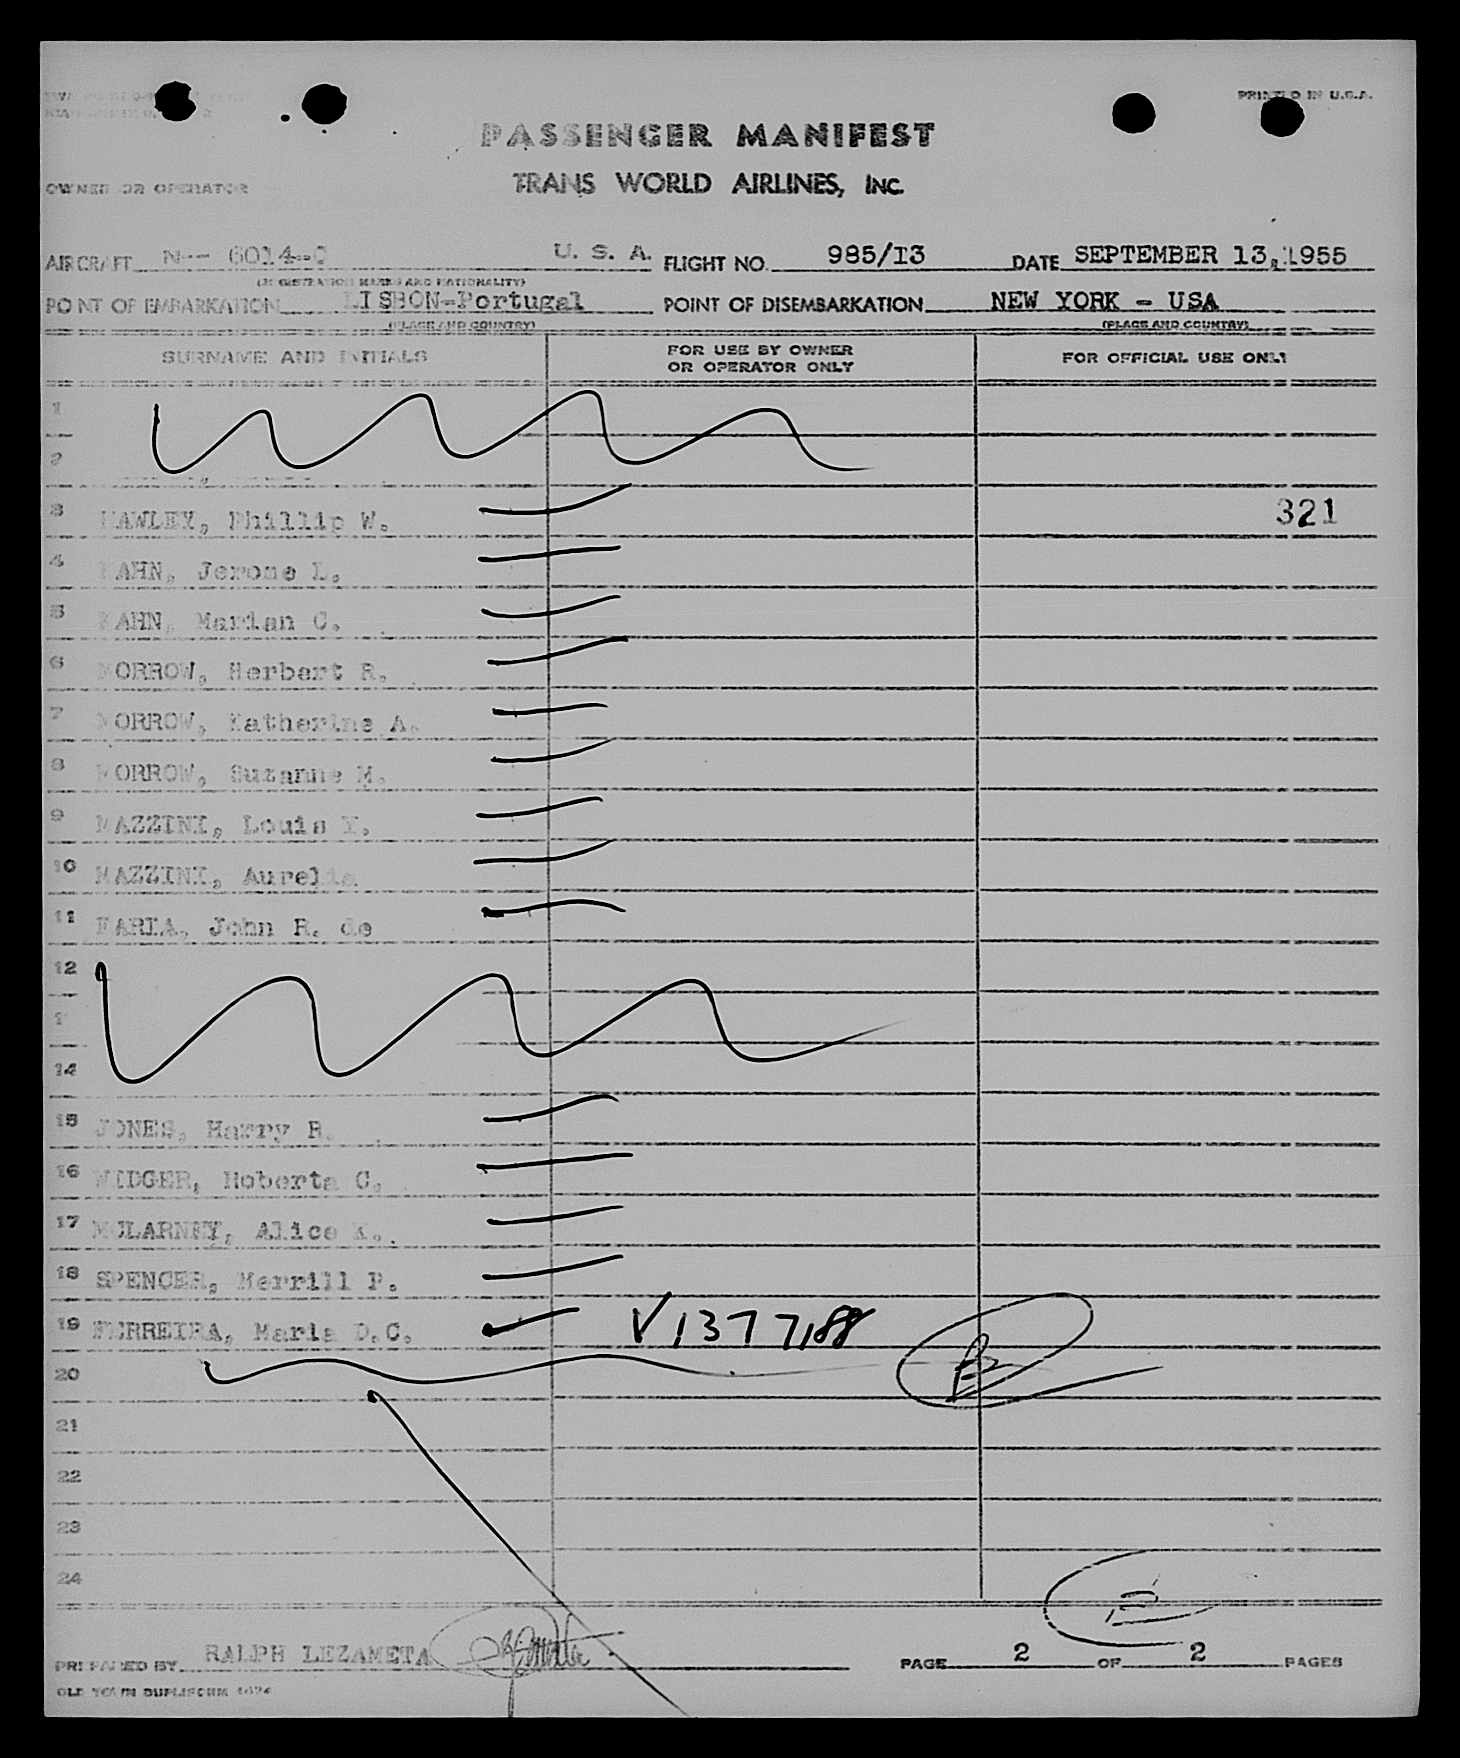 PRINTED IN U.S.A.
PASSENGER MANIFEST
OWNER OR OPERATOR TRANS WORLD AIRLINES, INC.
AIRCRAFT N-- 6014-C U. S. A. FLIGHT NO. 985/I3 DATE SEPTEMBER 13, 1955
(REGISTRATION MARKS AND NATIONALITY)
POINT OF EMBARKATION LISBON-Portugal POINT OF DISEMBARKATION NEW YORK - USA
(PLACE AND COUNTRY) (PLACE AND COUNTRY)
SURNAME AND INITIALS FOR USE BY OWNER OR OPERATOR ONLY FOR OFFICIAL USE ONLY
1
2
3 HAWLEY, Phillip W. 321
4 KAHN, Jerome L.
5 KAHN, Marian C.
6 MORROW, Herbert R.
7 MORROW, Katherine A.
8 MORROW, Suzanne M.
9 MAZZINI, Louis Y.
10 MAZZINI, Aurelia
11 FARIA, John R. de
12
1
14
15 JONES, Harry R.
16 WIDGER, Roberta C.
17 MCLARNEY, Alice K.
18 SPENCER, Merrill P.
19 FERREIRA, Maria D.C. V1377188
20
21
22
23
24
PREPARED BY RALPH LEZAMETA PAGE 2 OF 2 PAGES
OLD TOWN DUPLIFORM